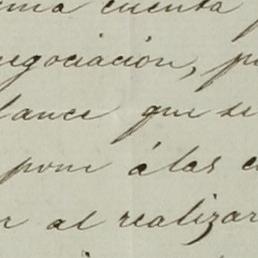 ma cuenta
negociación, p
lance que se
pone á las c
r al realizar